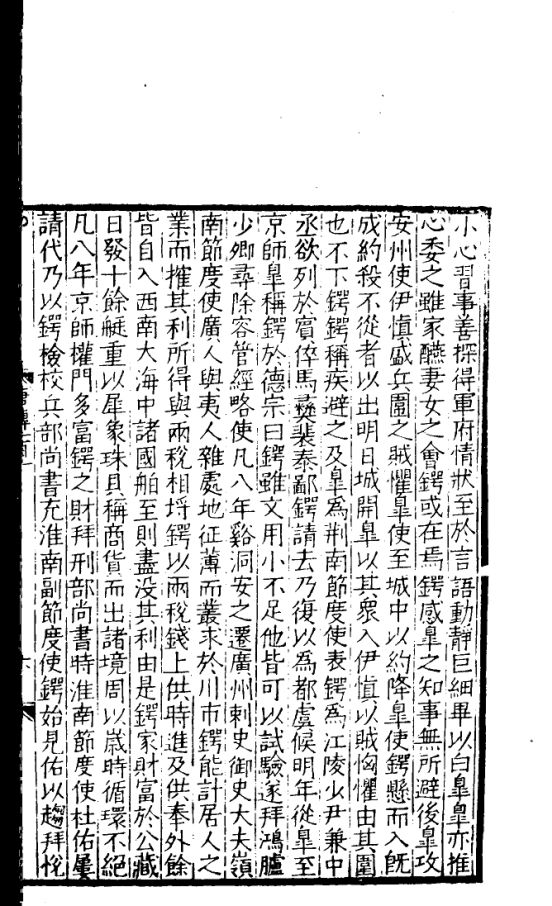 小心習事善探得軍府情狀至於言語動靜巨細畢以白臯臯亦推
心委之雖家醼妻女之會鍔或在焉鍔感臯之知事無所避後臯攻
安州使伊慎盛兵圍之賊懼臯使至城中以約降臯使鍔懸而入旣
成約殺不從者以出明日城開臯以其衆入伊慎以賊恟懼由其圍
也不下鍔鍔稱疾避之及臯爲荆南節度使表鍔爲江陵少尹兼中
丞欲列於賓倅馬彞裴泰鄙鍔請去乃復以爲都虞候明年從臯至
京師臯稱鍔於德宗曰鍔雖文用小不足他皆可以試驗遂拜鴻臚
少卿尋除容管經略使凡八年谿洞安之遷廣州刺史御史大夫嶺
南節度使廣人與夷人雜處地征薄而叢求於川市鍔能計居人之
業而搉其利所得與兩稅相埒鍔以兩稅錢上供時進及供奉外餘
皆自入西南大海中諸國舶至則盡没其利由是鍔家財富於公藏
日發十餘艇重以犀象珠貝稱商貨而出諸境周以歲時循環不絕
凡八年京師權門多富鍔之財拜刑部尚書時淮南節度使杜佑屢
請代乃以鍔檢校兵部尚書充淮南副節度使鍔始見佑以趨拜悅